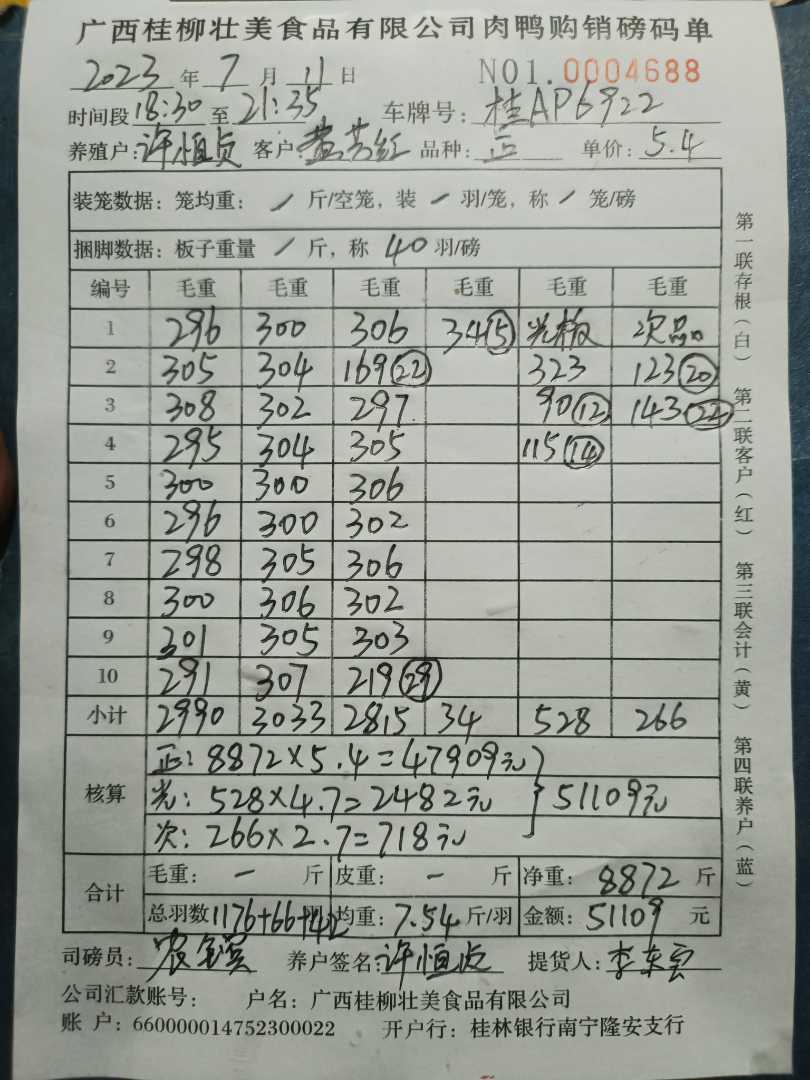 广西桂柳壮美食品有限公司肉鸭购销磅码单
2023 年 7 月 11 日 NO1.0004688
时间段 18:30 至 21:35 车牌号: 桂AP6922
养殖户: 许恒贞 客户: 黄芳红 品种: 正 单价: 5.4
装笼数据: 笼均重: / 斤/空笼, 装 / 羽/笼, 称 / 笼/磅
捆脚数据: 板子重量 / 斤, 称 40 羽/磅
编号 毛重 毛重 毛重 毛重 毛重 毛重
1 296 300 306 34⑤ 光板 次品
2 305 304 169㉒ 323 123⑳
3 308 302 297 90⑫ 143㉒
4 295 304 305 115⑭
5 300 300 306
6 296 300 302
7 298 305 306
8 300 306 302
9 301 305 303
10 291 307 219㉙
小计 2990 3033 2815 34 528 266
核算 正: 8872×5.4=47909元
光: 528×4.7=2482元 } 51109元
次: 266×2.7=718元
合计 毛重: - 斤 皮重: - 斤 净重: 8872 斤
总羽数 1176+66+42 羽 均重: 7.54 斤/羽 金额: 51109 元
司磅员: 养户签名: 许恒贞 提货人: 李东云
公司汇款账号: 户名: 广西桂柳壮美食品有限公司
账 户: 660000014752300022 开户行: 桂林银行南宁隆安支行
第一联存根(白) 第二联客户(红) 第三联会计(黄) 第四联养户(蓝)